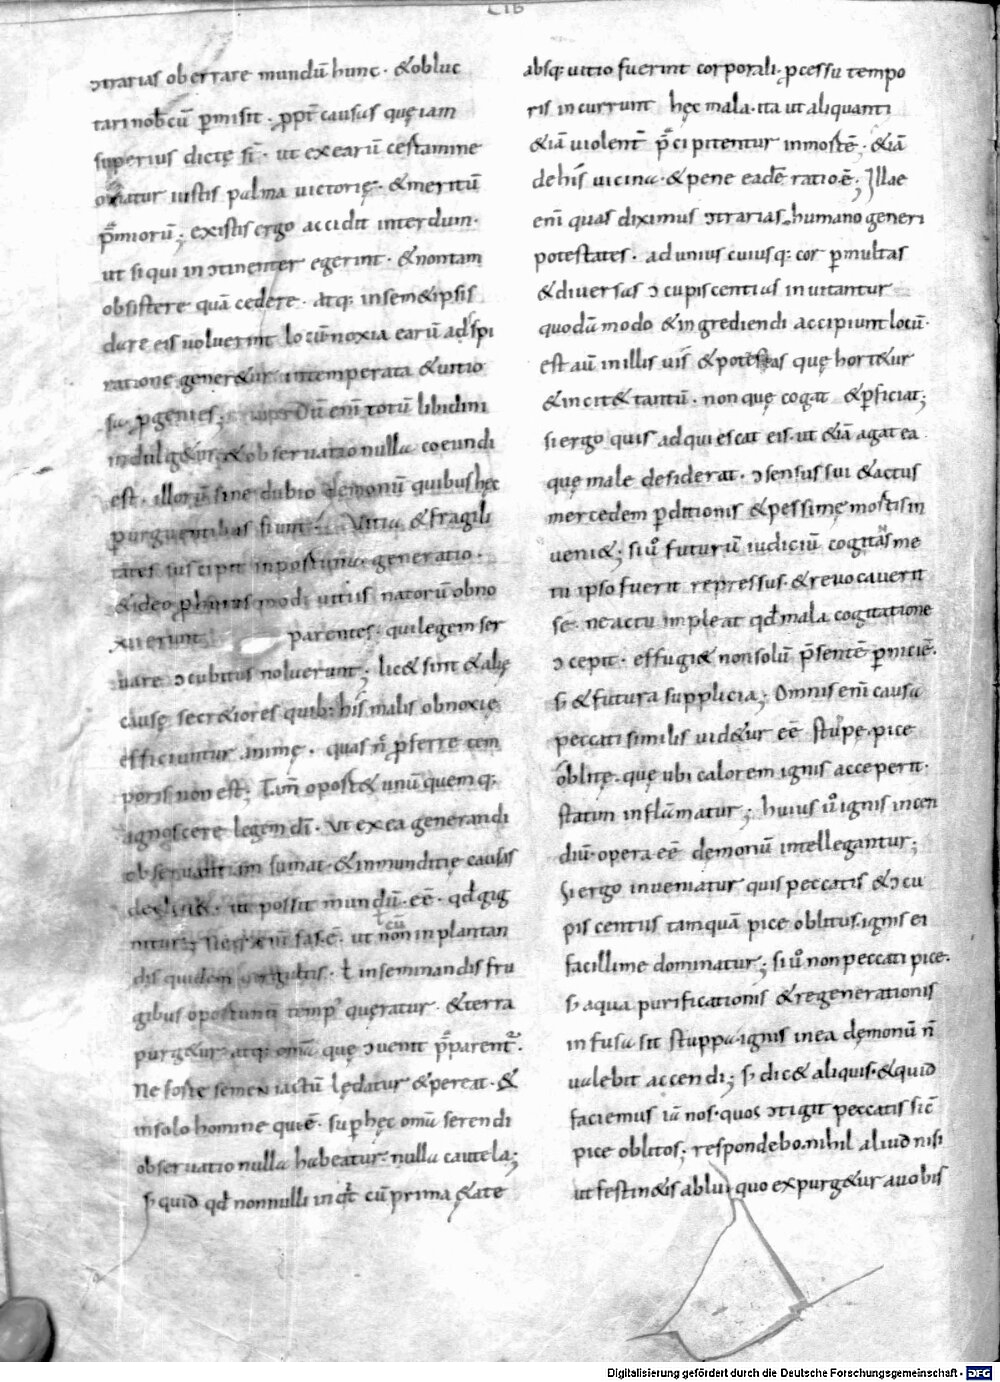 LIB
ↄtrarias oberrare mundū hunc · &obluc
tari nobcū p̄misit · ꝓpt̄ causas quęiam
superius dictę st̄ · ut ex earū certamine
oriatur iustis palma victorię · &meritū
p̄miorū ; existis ergo accidit interdum ·
ut siqui in ↄtinenter egerint · &nontam
obsistere quā cedere · atq: insem&ipsis
dare eis uoluerint locū noxia earū adspi
ratione gener&ur intemperata &uitio
sa ꝓgenies ; Dū enī totū libidini
indulg&ur &observatio nulla coeundi
est · illorū sine dubio dęmonū quibus hęc
purguentibus fiunt · Vitia &fragili
tates suscipit inpostuma generatio ·
&ideo modi uitiis natorū obno
xii erunt parentes · qui legem ser
uare ↄcubitus noluerunt · lic& sint &alię
causę secr&iores quib: his malis obnoxię
efficiuntur animę · quas n̄ ꝓferre tem
poris non est ; Tam̄ oport& unū quemq:
agnoscere legem dī · ut ex ea generandi
observantiam sumat · &inmunditię causas
declin& · ut possit mundū · eē · qđ gig
nitur ; Neq: enī fas · ē · ut non in plantan
ł cū
dis quidem surgultis · ł inseminandis fru
gibus oportunū temp' quęratur · &terra
purg&ur · atq: omīa quę ↄuenit p̄parent̄ ·
Ne forte semen iactū lędatur &pereat · &
insolo homine qui ē · sup hęc omīa serendi
observatio nulla habeatur · nulla cautela ;
S; quid qđ nonnulli in cū prima ętate
absq: uitio fuerint corporali · ꝓcessu tempo
ris incurrunt hęc mala · ita ut aliquanti
&iā violent̄ p̄cipitentur inmortē · &iā
dehis uicina · &pene eadē ratio · ē ; Illae
enī quas diximus ↄtrarias humano generi
potestates · ad unius cuiusq: cor p multas
&diversas ↄcupiscentias invitantur
quodā modo &ingrediendi accipiunt locū ·
est aū in illis uis &potestas quę hort&ur
&incit& tantū · non quę cogat &ꝑficiat ;
si ergo quis adquiescat eis · ut &iā agat ea
quę male desiderat · ↄsensus sui &actus
mercedem ꝑditionis &pessimę mortis in
ueni& ; si ů futurū iudiciū cogitās me
tu ipso fuerit repressus · &revocauerit
se · ne actu impleat qđ mala cogitatione
ↄcepit · effugi& non solū p̄sentē ꝑniciē ·
s; &futura supplicia ; Omnis enī causa
peccati similis uid&ur eē stupę · pice
oblitę · quę ubi calorem ignis acceperit ·
statim inflāmatur ; huius ů ignis incen
diū · opera eē dęmonū intellegantur ;
Si ergo inveniatur quis peccatis &ↄcu
piscentiis tamquā pice oblitus · ignis ei
facillime dominatur ; si ů non peccati pice ·
s; aqua purificationis &regenerationis
infusa sit stuppa · ignis in ea dęmonū n̄
ualebit accendi ; s; dic& aliquis · &quid
faciemus iā nos · quos ↄtigit peccatis sic̄
pice oblitos ; respondebo · nihil aliud nisi
ut festin&is ablui quo expurg&ur a uobis
Digitalisierung gefördert durch die Deutsche Forschungsgemeinschaft · DFG